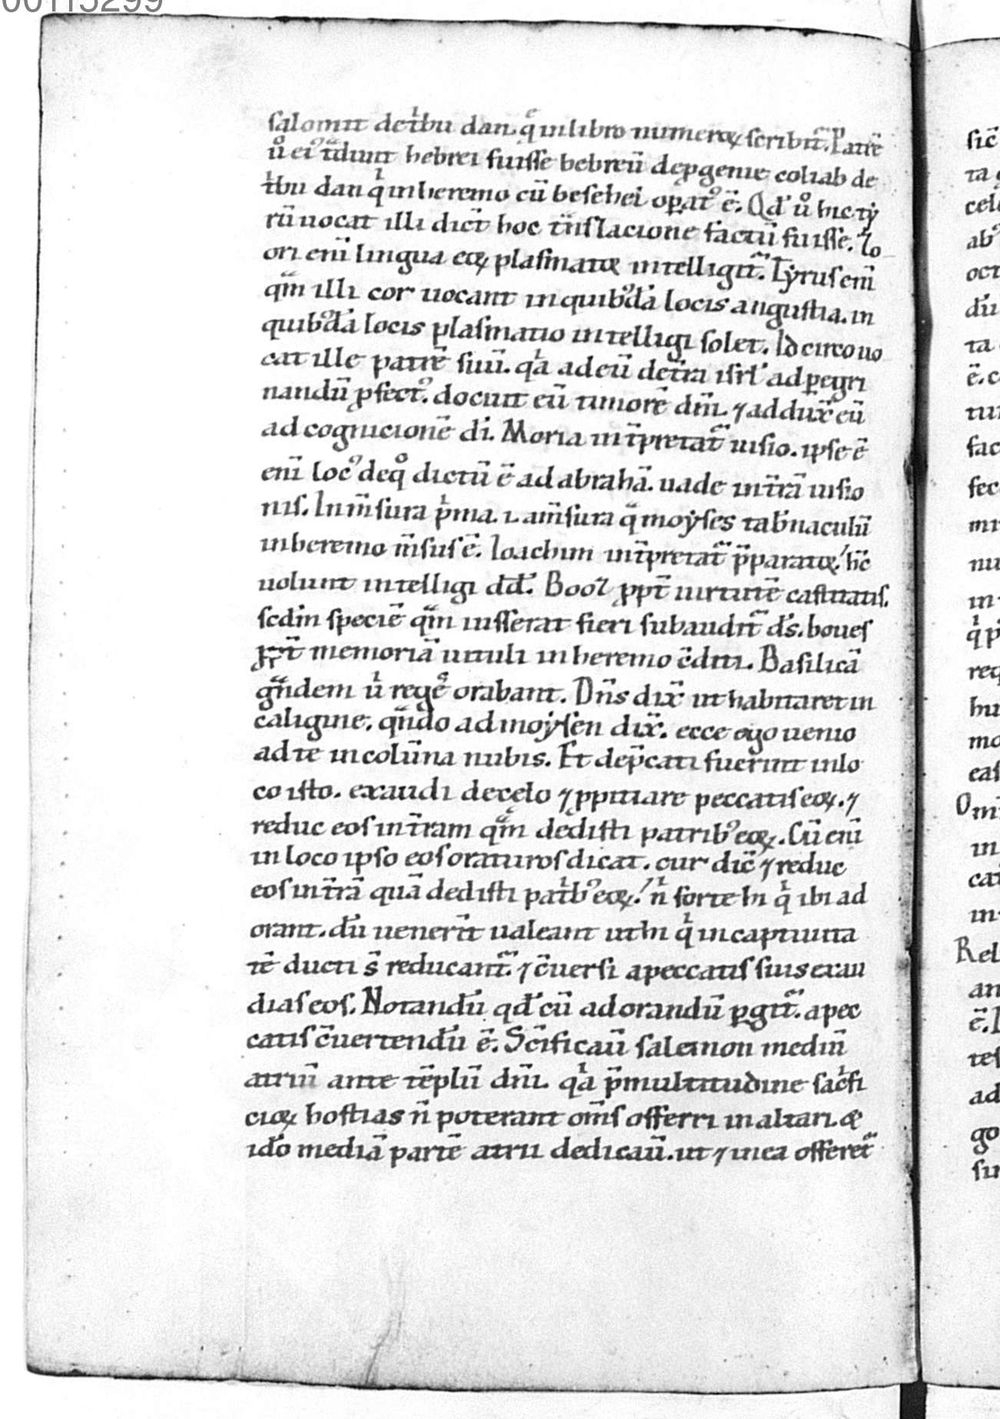 00115299
salomit detbu dan. q̃ in libro numeroꝝ scribit̃. Patrẽ
ů ei' t̃dunt hebrei fuisse hebreũ de ꝓgenie eoliab de
tbu dan q̇ in heremo cũ beseheł oꝑat' ẽ. Qđ ů hic tẏ
rũ uocat illi dict̃ hoc t̃nslacione factũ fuisse. Io
ori eni᷑ lingua eoꝝ plasmatio intelligit̃. Tẏrus eni᷑
q̃m illi cor uocant in quib'dã locis angustia. in
quib'dã locis plasmatio intelligi solet. Idcirco uo
cat ille patrẽ suũ. qͥa ad eũ det̃ra isrł ad ꝑegri
nandũ ꝓfect'. docuit eũ timorẽ dñi. ⁊ adduẋ eũ
ad cognicionẽ di᷑. Moria int̃pretat̃ uisio. ipse ẽ
eni᷑ loc' de q° dictũ ẽ ad abrahã. uade in t̃rã uisio
nis. In m̃sura pͥma. ı. am̃sura q̃ moẏses tab̃naculũ
in heremo m̃sus ẽ. Ioachim int̃pretat̃ p̃paratio. hc̃
uolunt intelligi đđ. Booz ꝓpt̃ uirtutẽ castitatis.
scđm speciẽ q̃m iusserat fieri subaudit̃ đs. boues
ꝓpt̃ memoriã uituli in heremo c̃diti. Basilicã
g̃ndem uͥ rege° orabant. Dñs diẋ ut habitaret in
caligine. qñdo ad moẏsen diẋ. ecce ego uenio
ad te in colũna nubis. Et dep̃cati fuerint in lo
co isto. exaudi de cęlo ⁊ ꝓpitiare peccatis eoꝝ. ⁊
reduc eos in t̃ram q̃m dedisti patrib' eoꝝ. Cũ eni᷑
in loco ipso eos oraturos dicat. cur dic̃ ⁊ reduc
eos in t̃rã quã dedisti patͥb' eoꝝ! ñ forte hi q̇ ibi ad
orant. dũ uenerit̃ ualeant ut hi q̇ in captiuita
tẽ ducti s̃ reducant̃. ⁊ c̃uersi a peccatis suis exau
dias eos. Notandũ qđ cũ adorandũ ꝑgit̃. a pec
catis c̃uertendũ ẽ. Sc̃ificaũ salemon mediũ
atriũ ante tẽplũ dñi. qͥa p̃ multitudine sac̃fi
cioꝝ hostias ñ poterant om̃s offerri in altari. &
ido mediã partẽ atrii dedicaũ. ut ⁊ in ea offeret̃